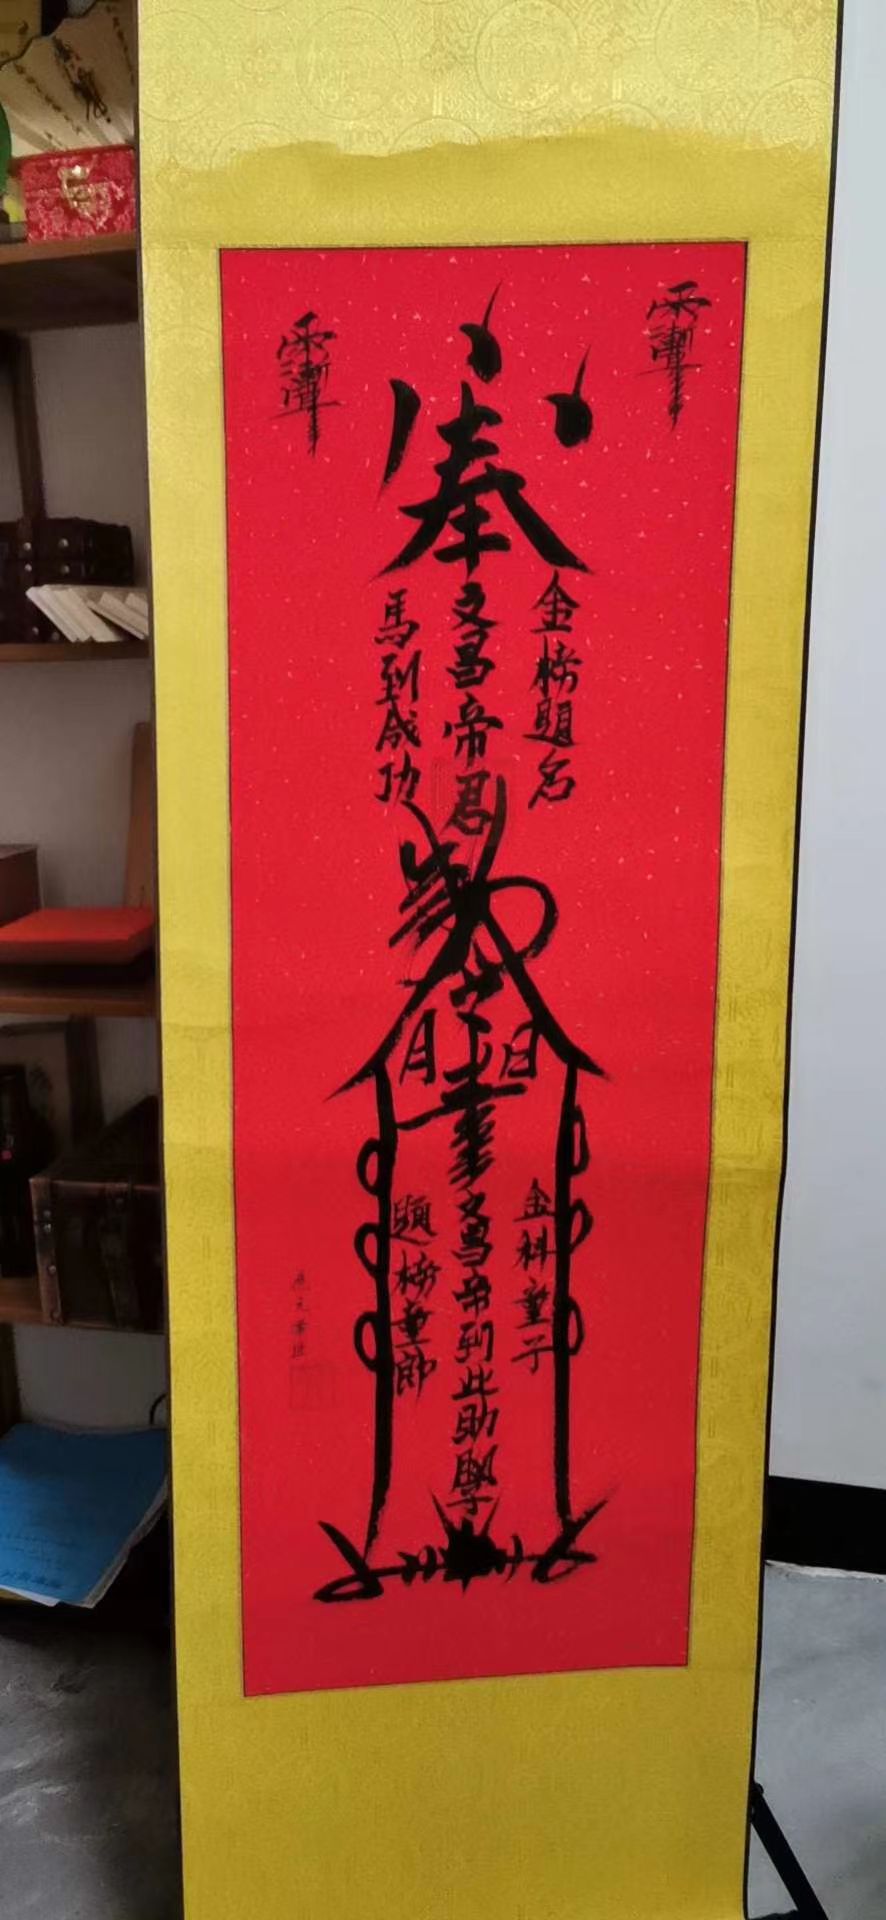 奉
金榜題名
文昌帝君
馬到成功
敕令
日
月
金科童子
文昌帝到此助學
題榜童郎